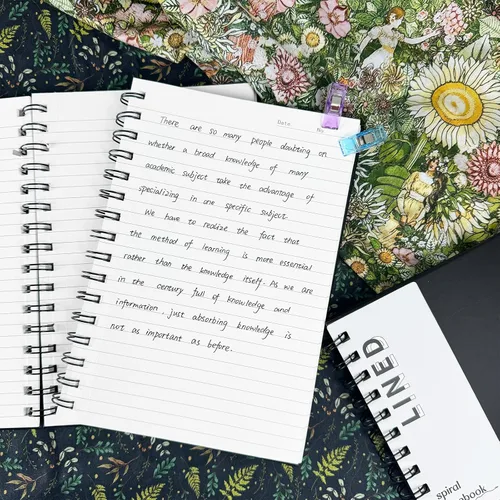 Date
No
There are so many people doubting on
whether a broad knowledge of many
academic subject take the advantage of
specializing in one specific subject.
We have to realize the fact that
the method of learning is more essential
rather than the knowledge itself. As we are
in the century full of knowledge and
information, just absorbing knowledge is
not as important as before.
LINED
spiral